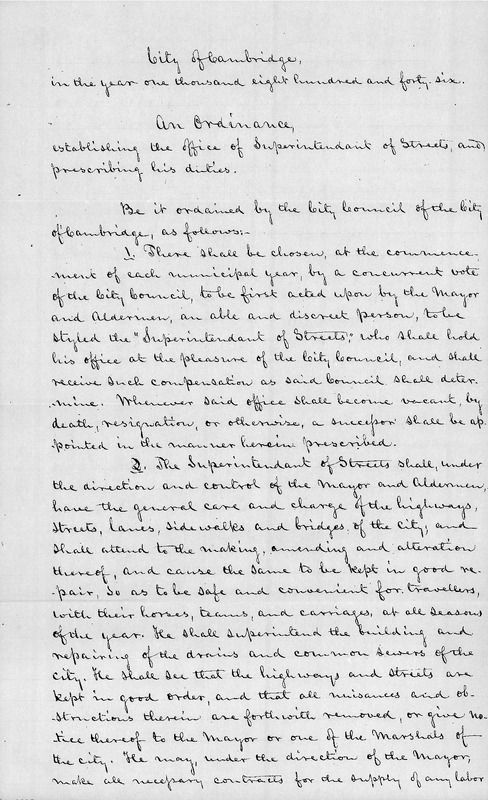 City of Cambridge,
in the year one thousand eight hundred and forty-six.
An Ordinance,
establishing the office of Superintendant of Streets, and
prescribing his duties.
Be it ordained by the City Council of the City
of Cambridge, as follows:-
1. There shall be chosen, at the commence-
ment of each municipal year, by a concurrent vote
of the City Council, to be first acted upon by the Mayor
and Aldermen, an able and discreet person, to be
styled the "Superintendant of Streets," who shall hold
his office at the pleasure of the City Council, and shall
receive such compensation as said Council shall deter-
-mine. Whenever said office shall become vacant, by
death, resignation, or otherwise, a successor shall be ap-
pointed in the manner herein prescribed.
2. The Superintendant of Streets shall, under
the direction and control of the Mayor and Aldermen,
have the general care and charge of the highways,
streets, lanes, sidewalks and bridges of the city, and
shall attend to the making, amending and alteration
thereof, and cause the same to be kept in good re-
-pair, so as to be safe and convenient for travellers,
with their horses, teams, and carriages, at all seasons
of the year. He shall superintend the building and
repairing of the drains and common sewers of the
city. He shall see that the highways and streets are
kept in good order, and that all nuisances and ob-
-structions therein are forthwith removed, or give no-
-tice thereof to the Mayor or one of the Marshals of
the city. He may, under the direction of the Mayor,
make all necessary contracts for the supply of any labor